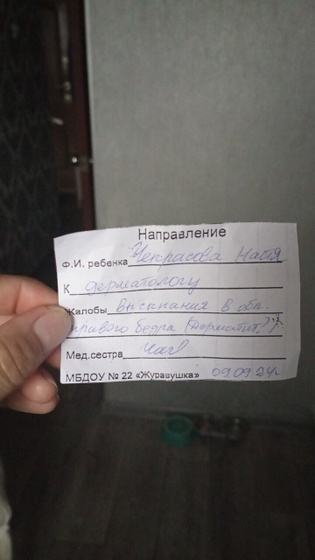 Направление
Ф.И. ребенка Некрасова Настя
К дерматологу
Жалобы высыпания в обл.
правого бедра (дерматит?)
Мед.сестра
МБДОУ № 22 «Журавушка» 09.09.24г